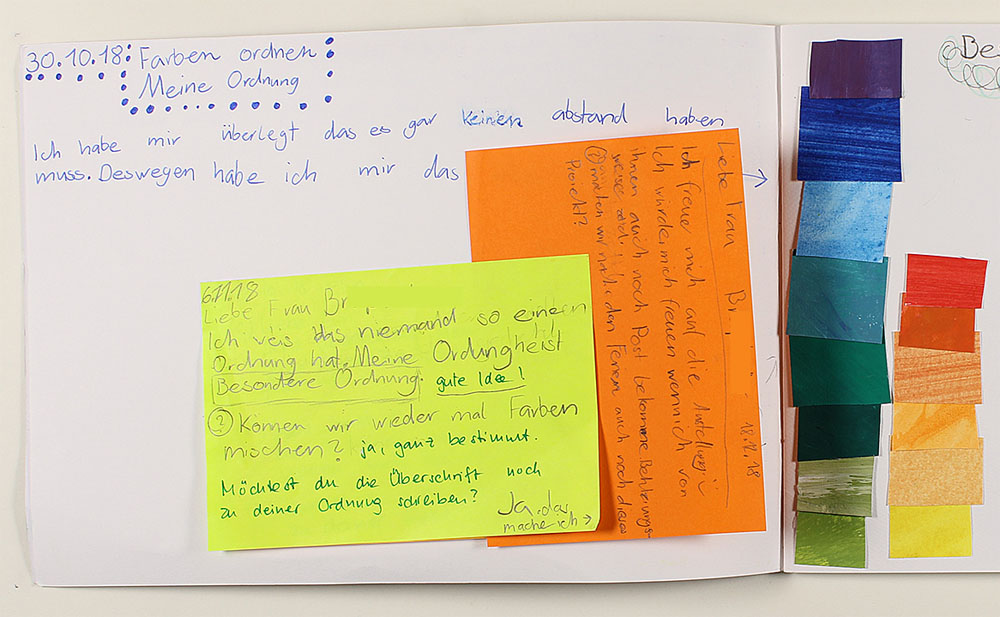 30.10.18: Farben ordnen
Meine Ordnung
Ich habe mir überlegt das es gar keinen abstand haben
muss. Deswegen habe ich mir das
Be
6.11.18
Liebe Frau Br ,
Ich veis das niemand so einen
Ordnung hat. Meine Ordungheist
Besondere Ordnung. gute Idee!
? Können wir wieder mal Farben
mischen? ja, ganz bestimmt.
Möchtest du die Überschrift noch
zu deiner Ordnung schreiben?
Ja, das
mache ich →
18.12.18
Liebe Frau Br,
Ich freue mich auf die
Ich würde mich freuen wenn ich von
ihnen auch noch Post bekomme
? machen wir nach den Ferien auch noch dieses
Projekt?